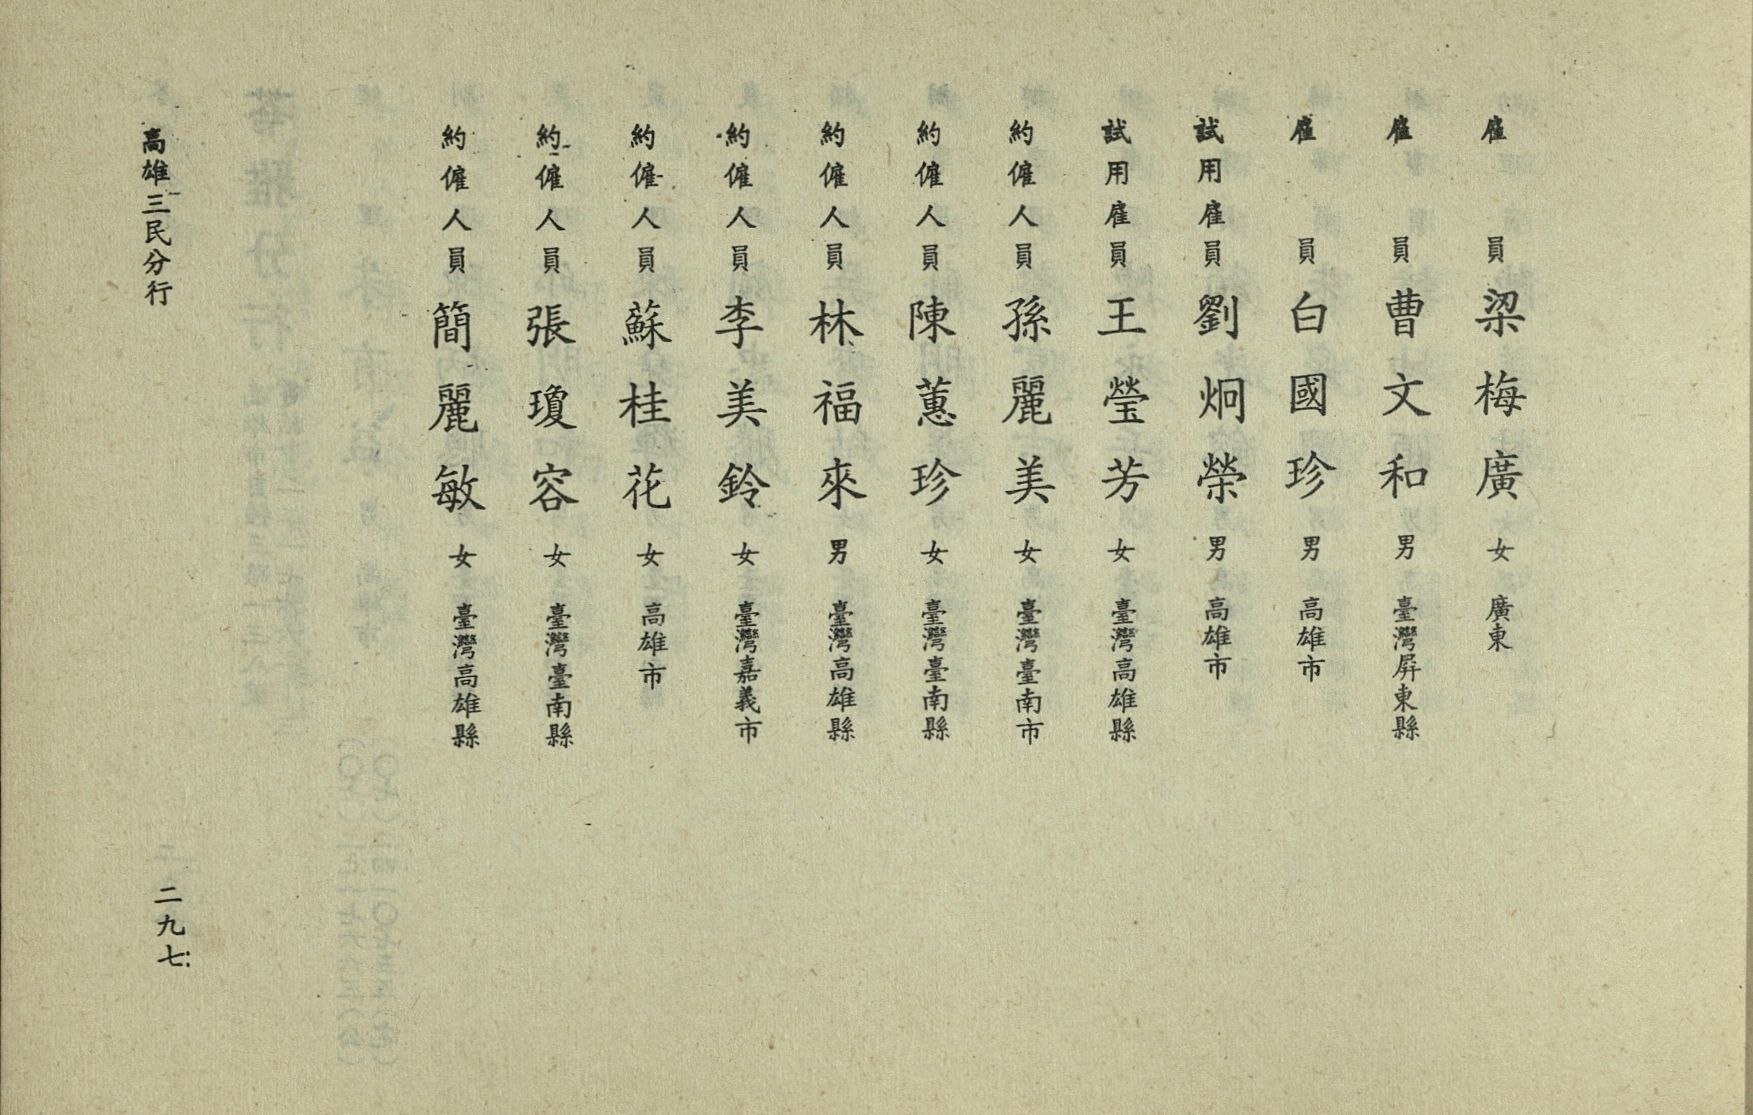 雇員 梁梅廣 女 廣東
雇員 曹文和 男 臺灣屏東縣
雇員 白國珍 男 高雄市
試用雇員 劉炯榮 男 高雄市
試用雇員 王瑩芳 女 臺灣高雄縣
約僱人員 孫麗美 女 臺灣臺南市
約僱人員 陳蕙珍 女 臺灣臺南縣
約僱人員 林福來 男 臺灣高雄縣
約僱人員 李美鈴 女 臺灣嘉義市
約僱人員 蘇桂花 女 高雄市
約僱人員 張瓊容 女 臺灣臺南縣
約僱人員 簡麗敏 女 臺灣高雄縣
高雄三民分行 二九七